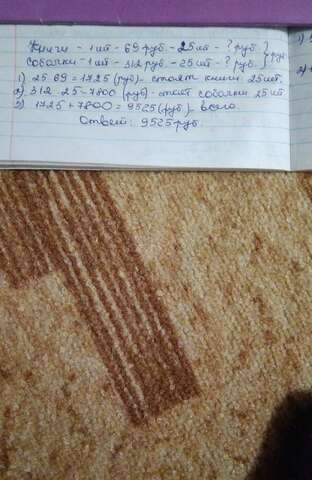 Книги - 1 шт - 69 руб - 25 шт - ? руб. } ? руб
Собачки - 1 шт - 312 руб - 25 шт - ? руб.
1) 25 · 69 = 1725 (руб) - стоят книги 25 шт.
2) 312 · 25 = 7800 (руб) - стоят собачки 25 шт
3) 1725 + 7800 = 9525 (руб) - всего
Ответ: 9525 руб.
1)
2)